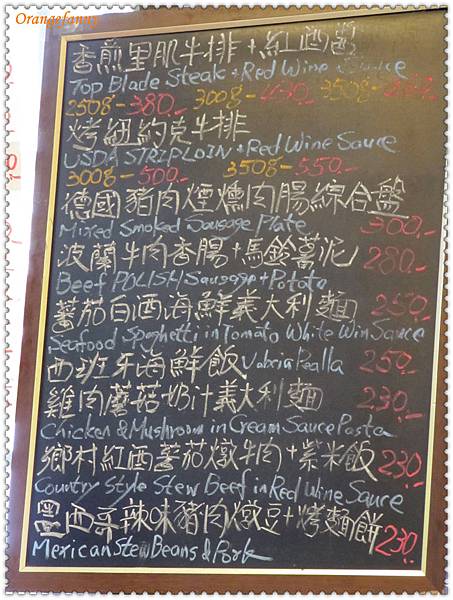 Orangefanny
香煎里肌牛排+紅酒醬
Top Blade Steak+Red Wine Sauce
250g-380.- 300g-430.- 350g-
烤紐約克牛排
USDA STRIPLOIN+Red Wine Sauce
300g-500.- 350g-550.-
德國豬肉煙燻肉腸綜合盤
Mixed Smoked Sausage Plate 300.-
波蘭牛肉香腸+馬鈴薯泥 280.-
Beef POLISH Sausage+Potato
蕃茄白酒海鮮義大利麵 250.-
Seafood Spaghetti in Tomato White Win Sauce
西班牙海鮮飯 Valncia Pealla 250.-
雞肉蘑菇奶汁義大利麵 230.-
Chicken & Mushroom in Cream Sauce Pasta
鄉村紅酒蕃茄燉牛肉+紫米飯 230.-
Country Style Stew Beef in Red Wine Sauce
墨西哥辣味豬肉燉豆+烤麵餅 230.-
Mexican Stew Beans & Pork